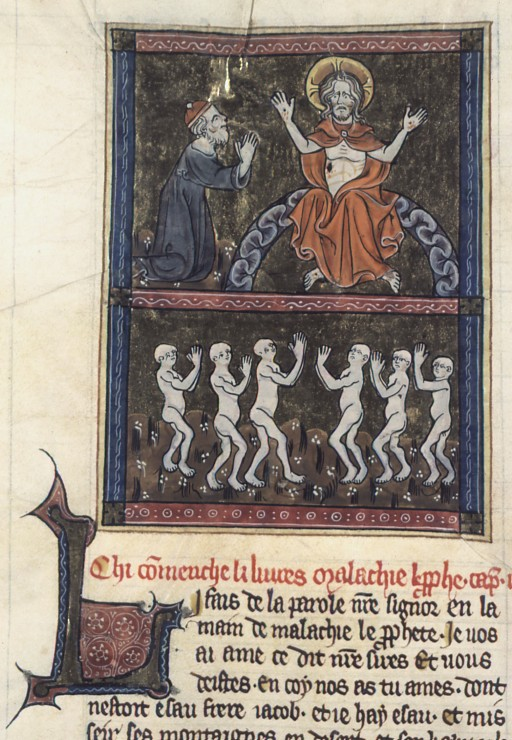 Chi cōmenche li livres malachie le pphe. cap. i
Li fais de la parole nr̄e signor en la
main de malachie le pphete. Je vos
ai ame ce dit nr̄e sires Et vous
desistes. En coy nos as tu ames. Dont
nestoit esau frere iacob. et ie hay esau. et mis
seir ses montaignes en desert. et son